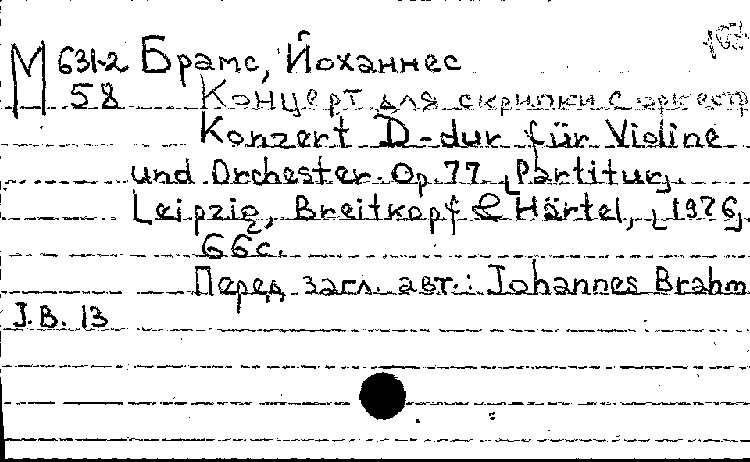 М 631-2 Брамс, Йоханнес
58 Концерт для скрипки с оркестр
Konzert D-dur für Violine
und Orchester. Op. 77 [Partitur].
Leipzig, Breitkopf & Härtel, [1976].
66 с.
Перед загл. авт.: Johannes Brahm
J.B. 13